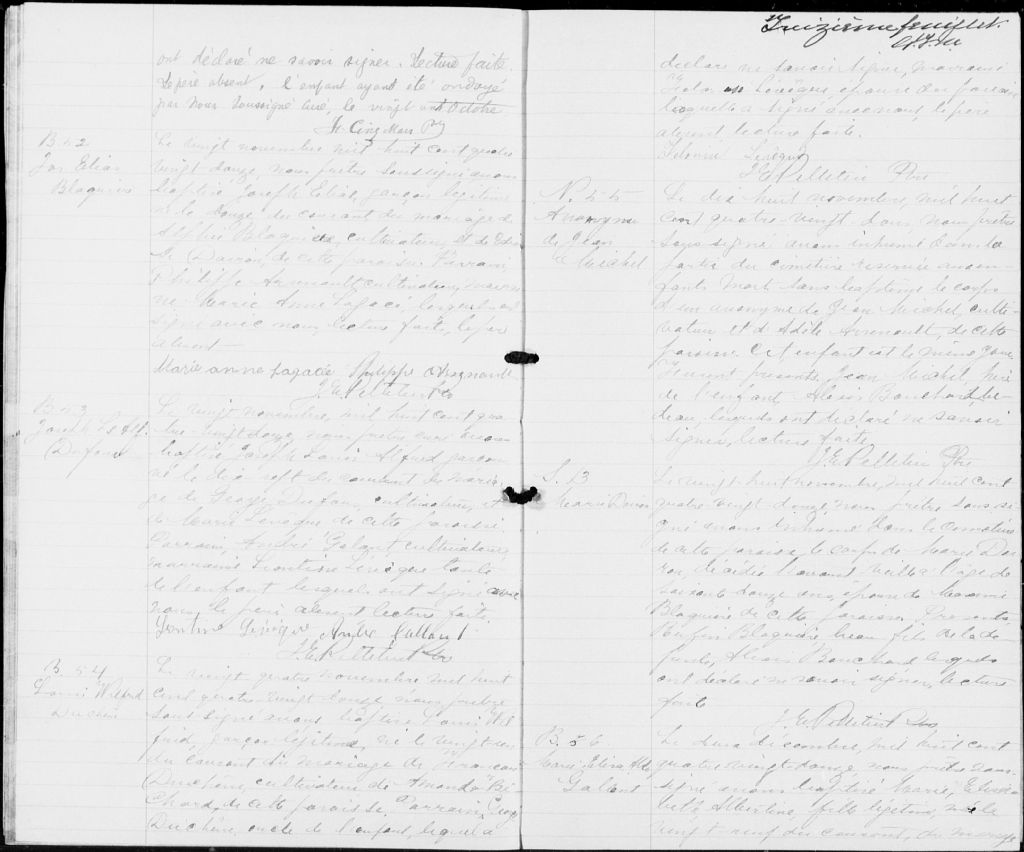 ont déclaré ne savoir signer. Lecture faite
Le père absent. l'enfant ayant été ondoyé
par nous soussigné curé, le vingt
B. 52
Jos Elias
Blaquière
Le vingt novembre mil huit cent quatre
vingt douze, nous prêtre soussigné avons
baptisé Joseph Elias, garçon légitime
né le douze du courant du mariage de
Blaquière, cultivateur, et de
de cette paroisse Parrain
Philippe Arsenault cultivateur, marrai
ne Marie Anne Lagacé, lesquels ont
signé avec nous, lecture faite, le père
absent
Marie anne Lagacée Philippe
J. E. Pelletier Ptre
B. 53
Joseph Ls Alf.
Dufour
Le vingt novembre, mil huit cent qua-
tre-vingt douze, nous prêtre curé avons
baptisé Joseph Louis Alfred garçon
né le dix sept du courant du maria-
ge de Dufour, cultivateur, et
de Marie Levêque de cette paroisse
Parrain André Galant cultivateur
marraine Léontine Levêque tante
de l'enfant lesquels ont signé avec
nous, le père absent lecture faite.
Leontine Levêque André Gallant
J. E. Pelletier Ptre
B. 54
Louis Wilfrid
Duchêne
Le vingt quatre novembre mil huit
cent quatre-vingt douze nous prêtre
soussigné avons baptisé Louis Wil
frid, garçon légitime, né le vingt
du courant du mariage de François
Duchêne, cultivateur de Amanda Bé
chard, de cette paroisse. Parrain
Duchêne, oncle de l'enfant, lequel a
Treizième feuillet.
déclaré ne savoir signer, marraine
Levêque, épouse du parrain
laquelle a signé avec nous, le père
absent lecture faite.
Levêque
J. E. Pelletier Ptre
N. 55
Anonyme
de Jean
Michel
Le dix huit novembre, mil huit
cent quatre-vingt douze nous prêtre
soussigné avons inhumé dans la
partie du cimetière réservée aux en-
fants morts sans baptême le corps
d'un anonyme de Jean Michel, culti-
vateur et d'Adèle Arsenault, de cette
paroisse. Cet enfant est le même jour
Furent présents, Jean Michel, père
de l'enfant Alexis Bouchard, be-
deau, lesquels ont déclaré ne savoir
signer, lecture faite.
J. E. Pelletier Ptre
S. 13
Marie Doiron
Le vingt huit novembre, mil huit cent
quatre vingt douze nous prêtre soussi-
gné avons inhumé dans le cimetière
de cette paroisse, le corps de Marie Doi-
ron, décédée l'avant veille à l'âge de
soixante douze ans, épouse de
Blaquière de cette paroisse. Présents
Rufin Blaquière beau fils de la dé
funte, Alexis Bouchard lesquels
ont déclaré ne savoir signer, lecture
faite
J. E. Pelletier Ptre
B. 56
Marie Eliza Alb.
Gallant
Le deux décembre, mil huit cent
quatre vingt douze nous prêtre sous-
signé avons baptisé Marie,
Albertine, fille légitime, née le
vingt-neuf du courant, du mariage